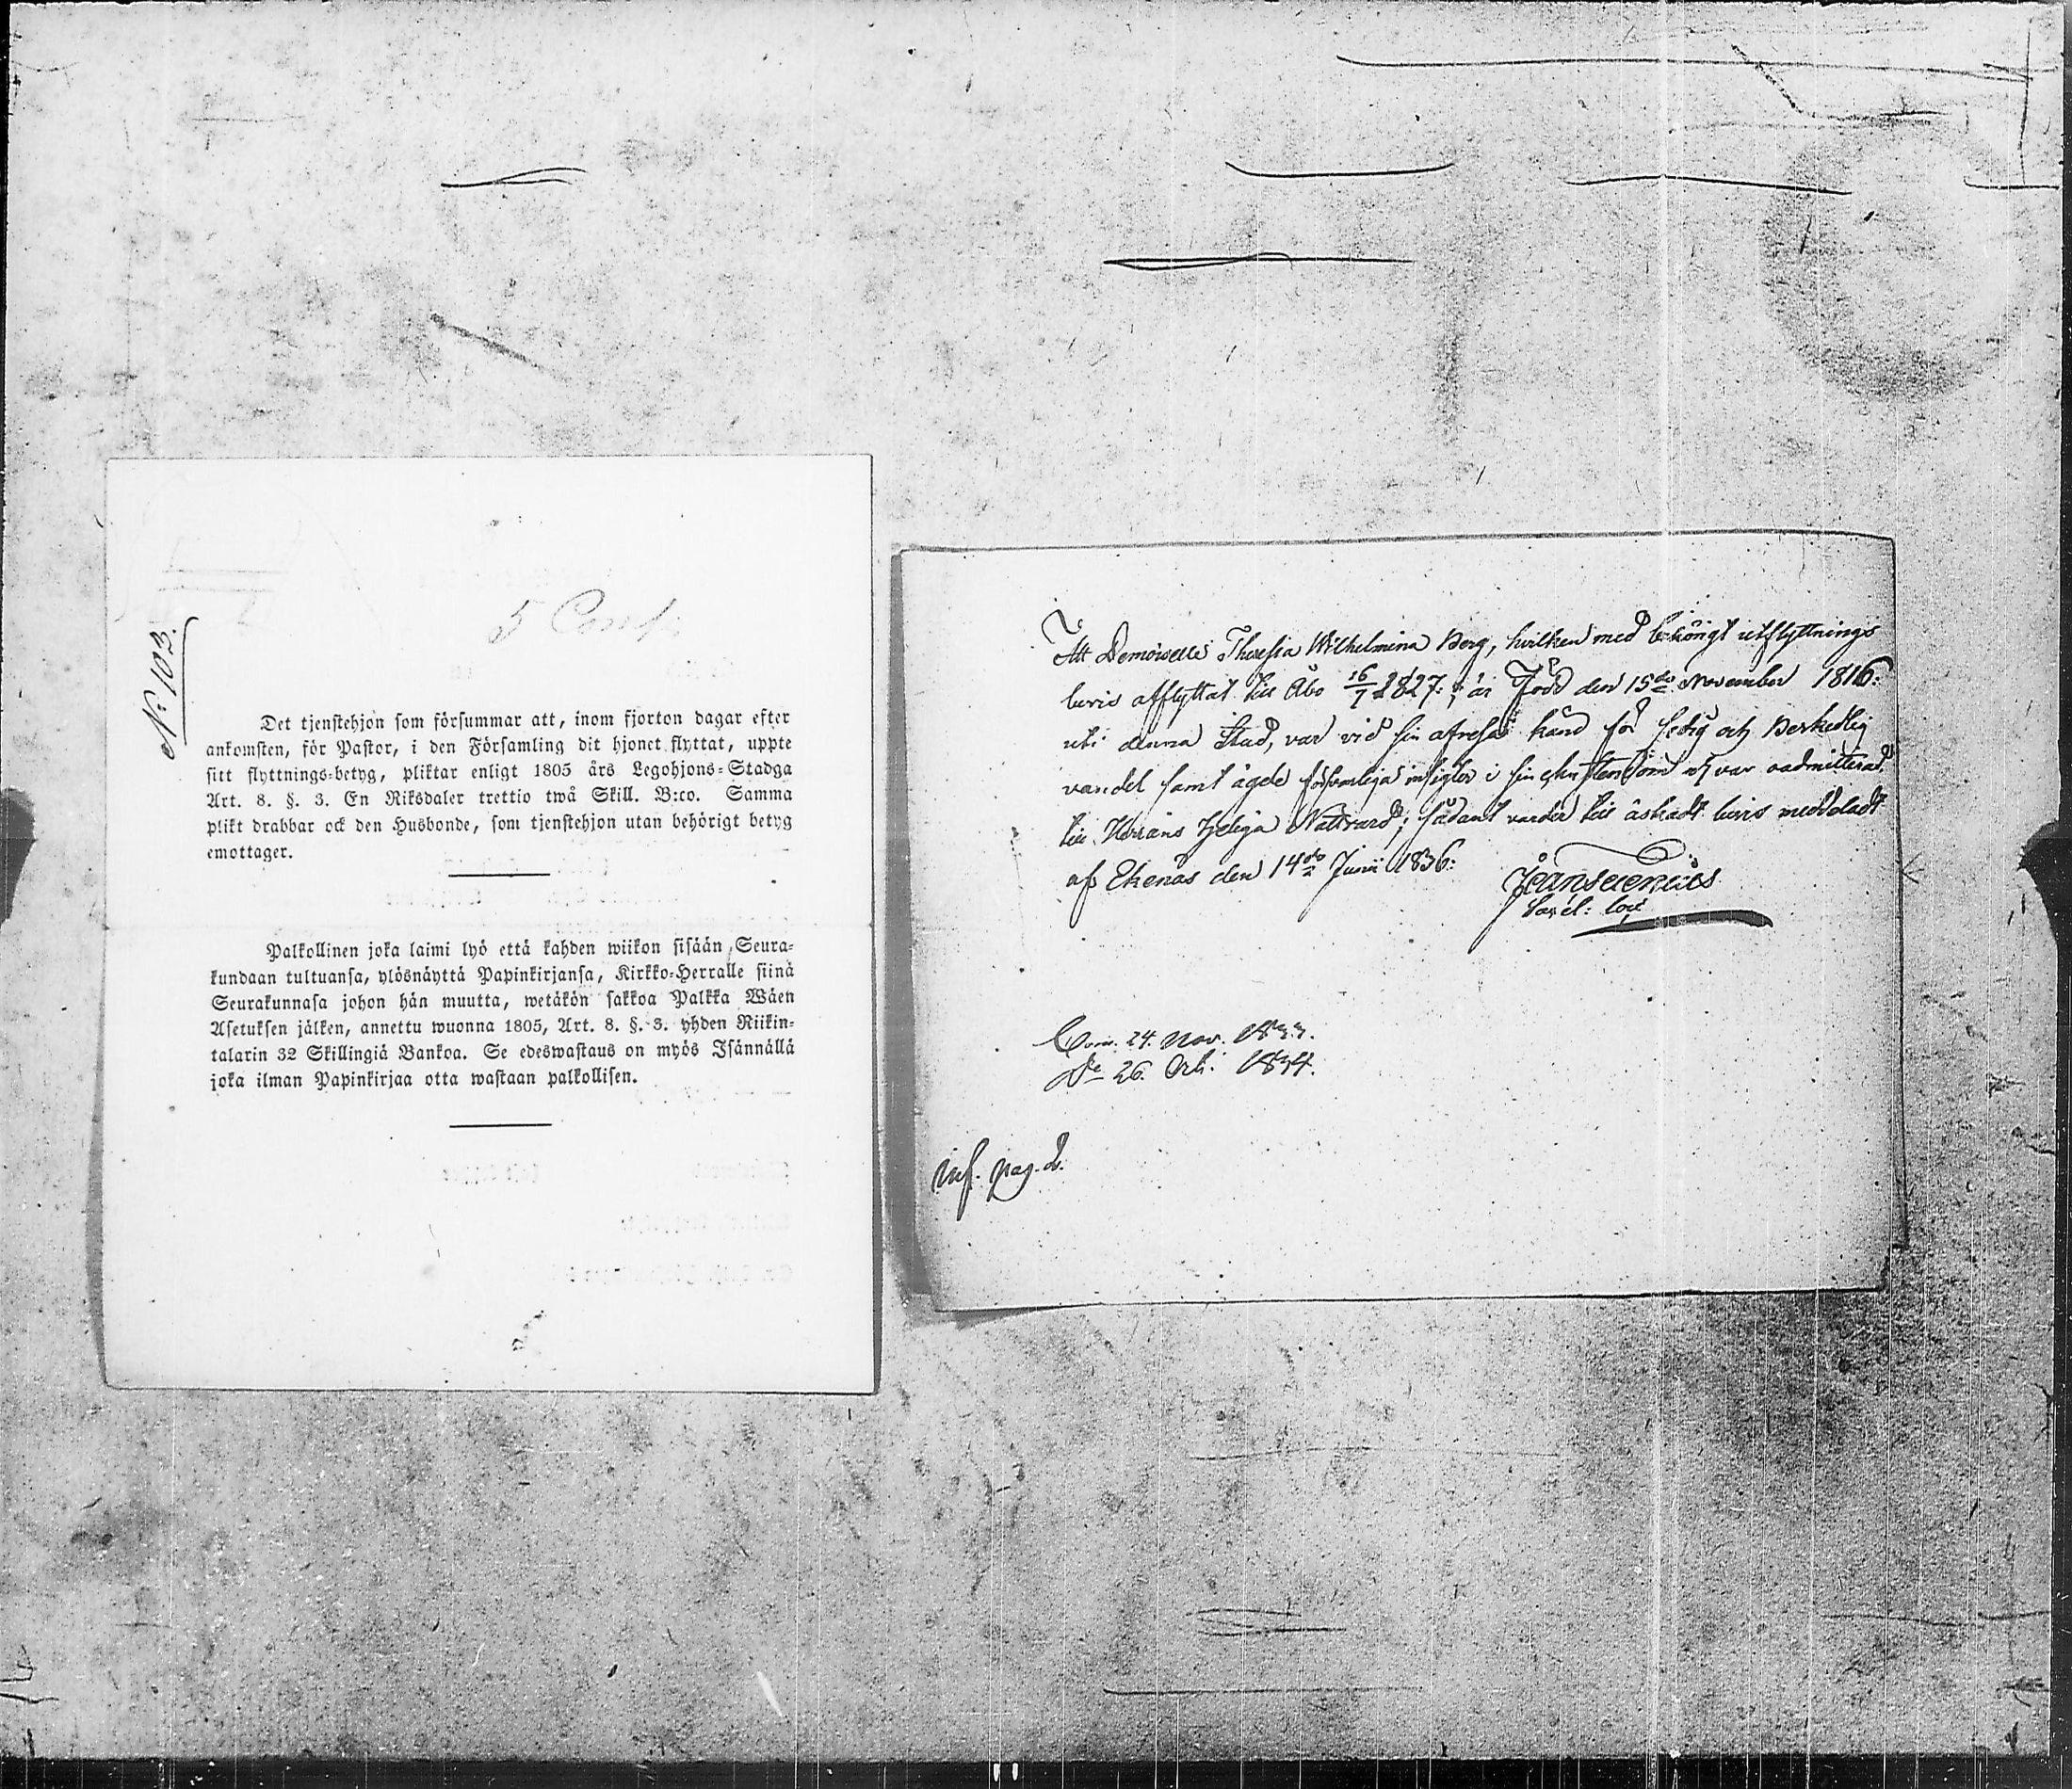 N: 103.
5 Conf:
Det tjenstehjon som försummar att, inom fjorton dagar efter
ankomsten, för Pastor, i den Församling dit hjonet flyttat, uppte
sitt flyttnings-betyg, pliktar enligt 1805 års Legohjons-Stadga
Art. 8. §. 3. En Riksdaler trettio twå Skill. B:co. Samma
plikt drabbar ock den Husbonde, som tjenstehjon utan behörigt betyg
emottager.
Palkollinen joka laimi lyö että kahden wiikon sisään Seura-
kundaan tultuansa, ylösnäyttä Papinkirjansa, Kirkko-Herralle siinä
Seurakunnasa johon hän muutta, wetäkön sakkoa Palkka Wäen
Asetuksen jälken, annettu wuonna 1805, Art. 8. §. 3. yhden Riikin-
talarin 32 Skillingiä Bankoa. Se edeswastaus on myös Isännällä
joka ilman Papinkirjaa otta wastaan palkollisen.
Att Demoiselle Theresia Wilhelmina Berg, hvilken med behörigt utflyttnings
bevis afflyttat till Åbo 16/7 1827; är Född den 15de November 1816:
uti denna Stad, var vid sin afresa känd för sedig och berömlig
vandel samt ägde försvarliga insigter i sin christendom och var oadmitterad
till Herrans Heliga Nattvard; sådant varder till äskadt bevis meddeladt
af Ekenäs den 14de Junii 1836:
Com. 24. Nov. 1833.
De 26. Oct: 1834.
inf. pag. 2.